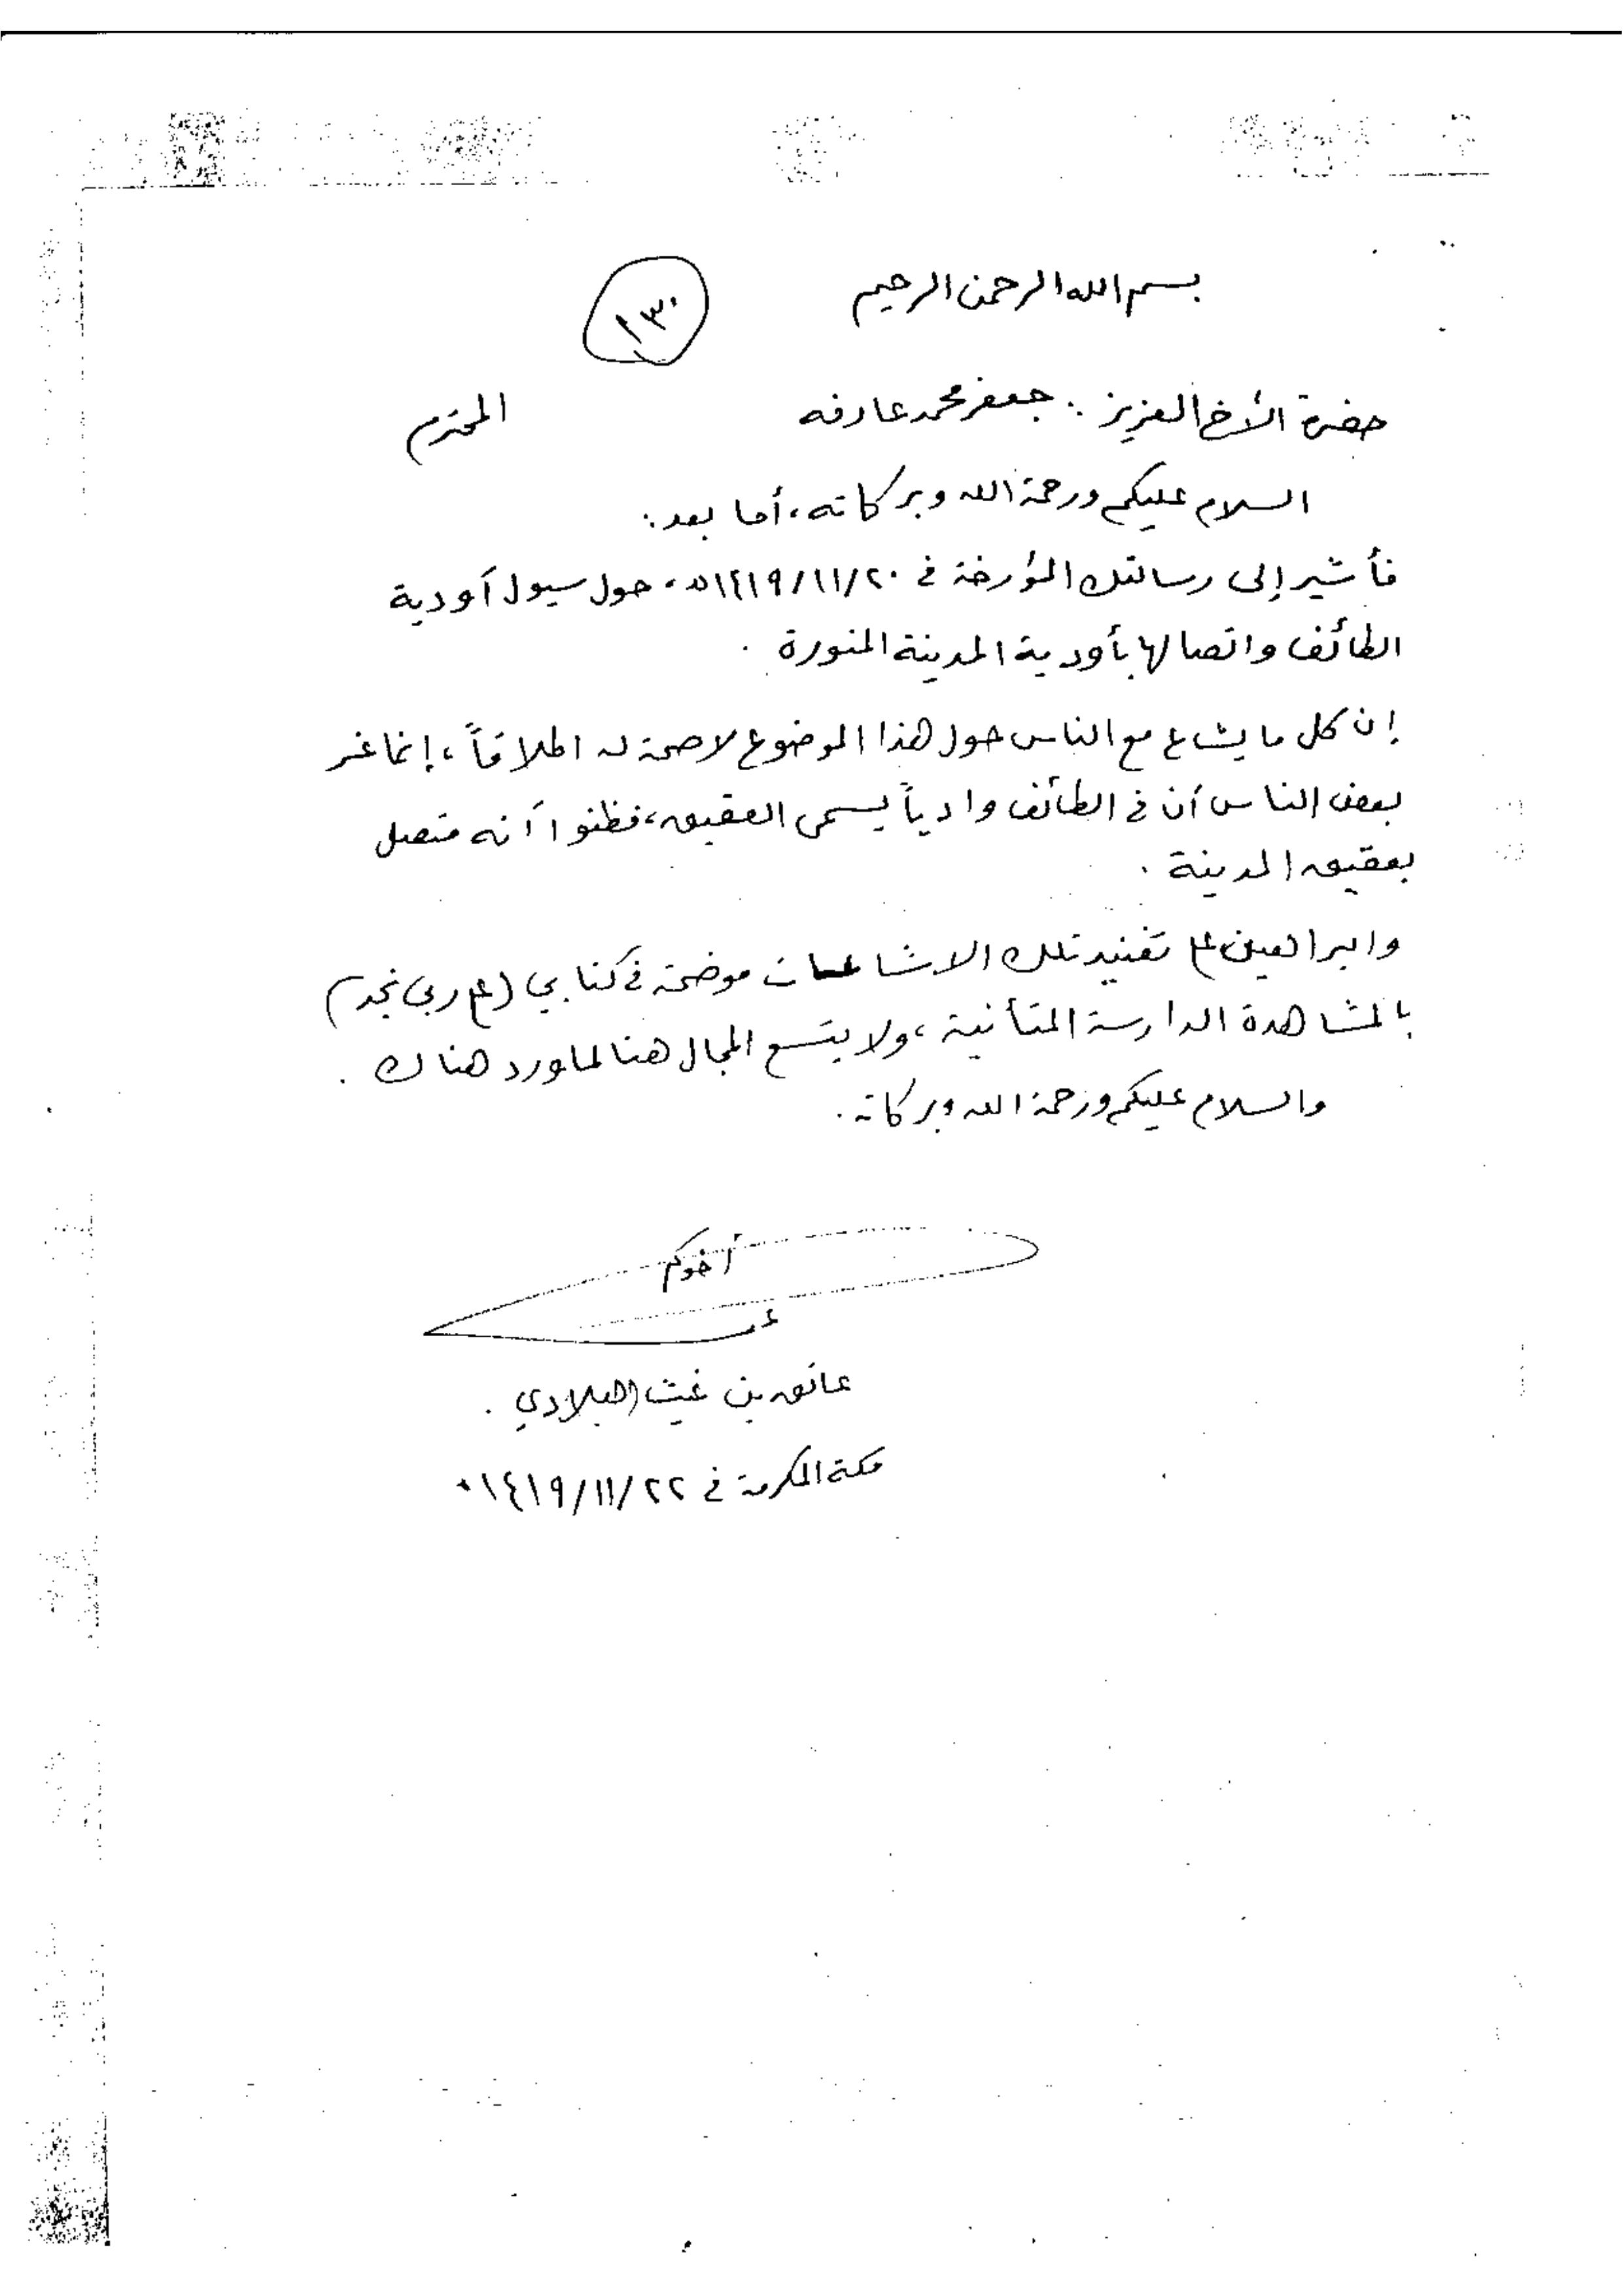 بسم الله الرحمن الرحيم
١٣٠
حضرة الأخ العزيز : جعفر محمد عارفه المحترم
السلام عليكم ورحمة الله وبركاته، أما بعد :
فأشير إلى رسالتك المؤرخة في ١٤١٩/١١/٢٠هـ، حول سيول أودية
الطائف واتصالها بأودية المدينة المنورة .
إن كل ما يشاع مع الناس حول هذا الموضوع لا صحة له اطلاقاً ، إنما غر
بعض الناس أن في الطائف وادياً يسمى العقيق، فظنوا أنه متصل
بعقيق المدينة .
والبراهين على تفنيد تلك الاشاعات موضحة في كتابي (على ربى نجد)
بالمشاهدة الدارسة المتأنية ، ولا يتسع المجال هنا لما ورد هناك .
والسلام عليكم ورحمة الله وبركاته .
أخوكم
عاتق بن غيث البلادي .
مكة المكرمة في ١٤١٩/١١/٢٢ .